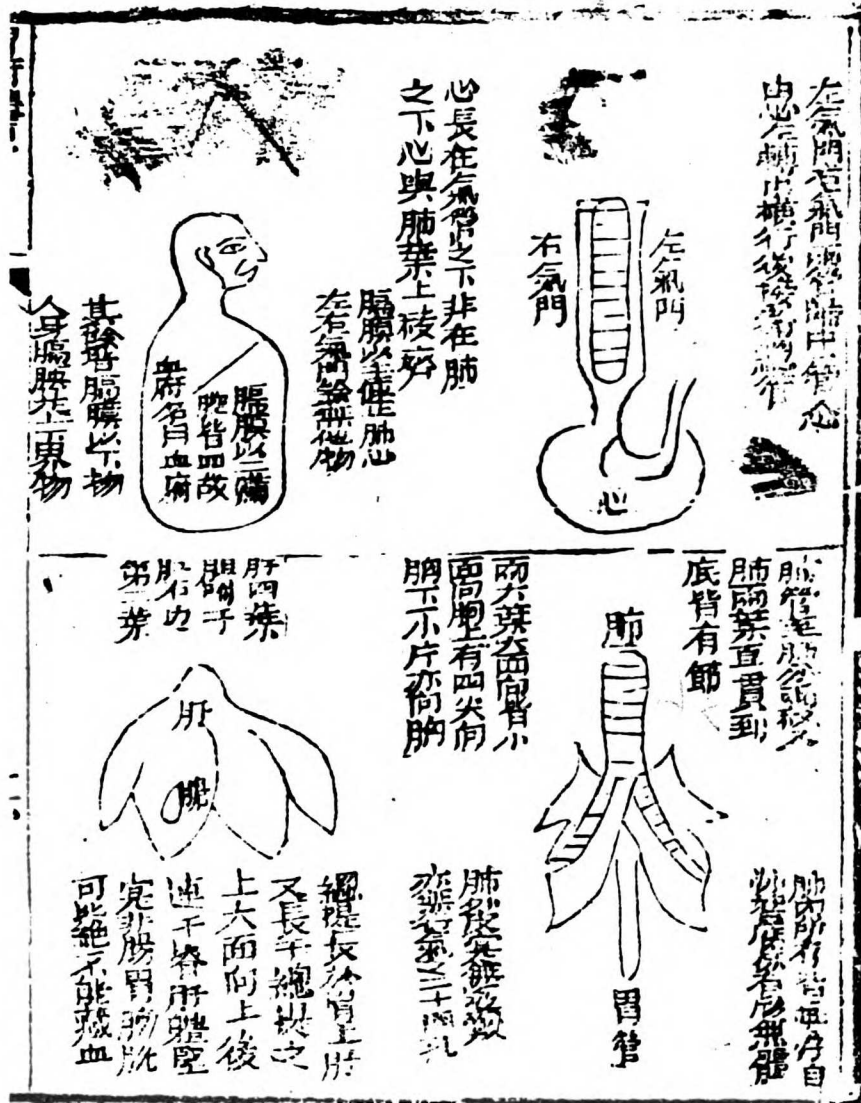 左氣門右氣門兩管歸中一管入心
由心左轉出橫行後接衛總管
左氣門
右氣門
心
心長在氣管之下非在肺
之下心與肺葉上稜齊
膈膜以上僅止肺心
左右氣門餘無他物
膈膜以上滿
腔皆血故
血府名曰血府
其餘皆膈膜以下物
人身膈膜是上下界物
肺管至肺分兩杈入
肺兩葉直貫到
底皆有節
肺
胃管
肺內所存皆輕浮白
有形無體
兩大葉大面向背小
面向胸上有四尖向
胸下一小片亦向胸
肺外皮實無透竅
亦無行氣之二十四孔
肝四葉
膽附于
肝右边
第二葉
肝
膽
總提長於胃上肝
又長于總提之
上大面向上後
連于脊肝體堅
實非腸胃膀胱
可比絕不能藏血